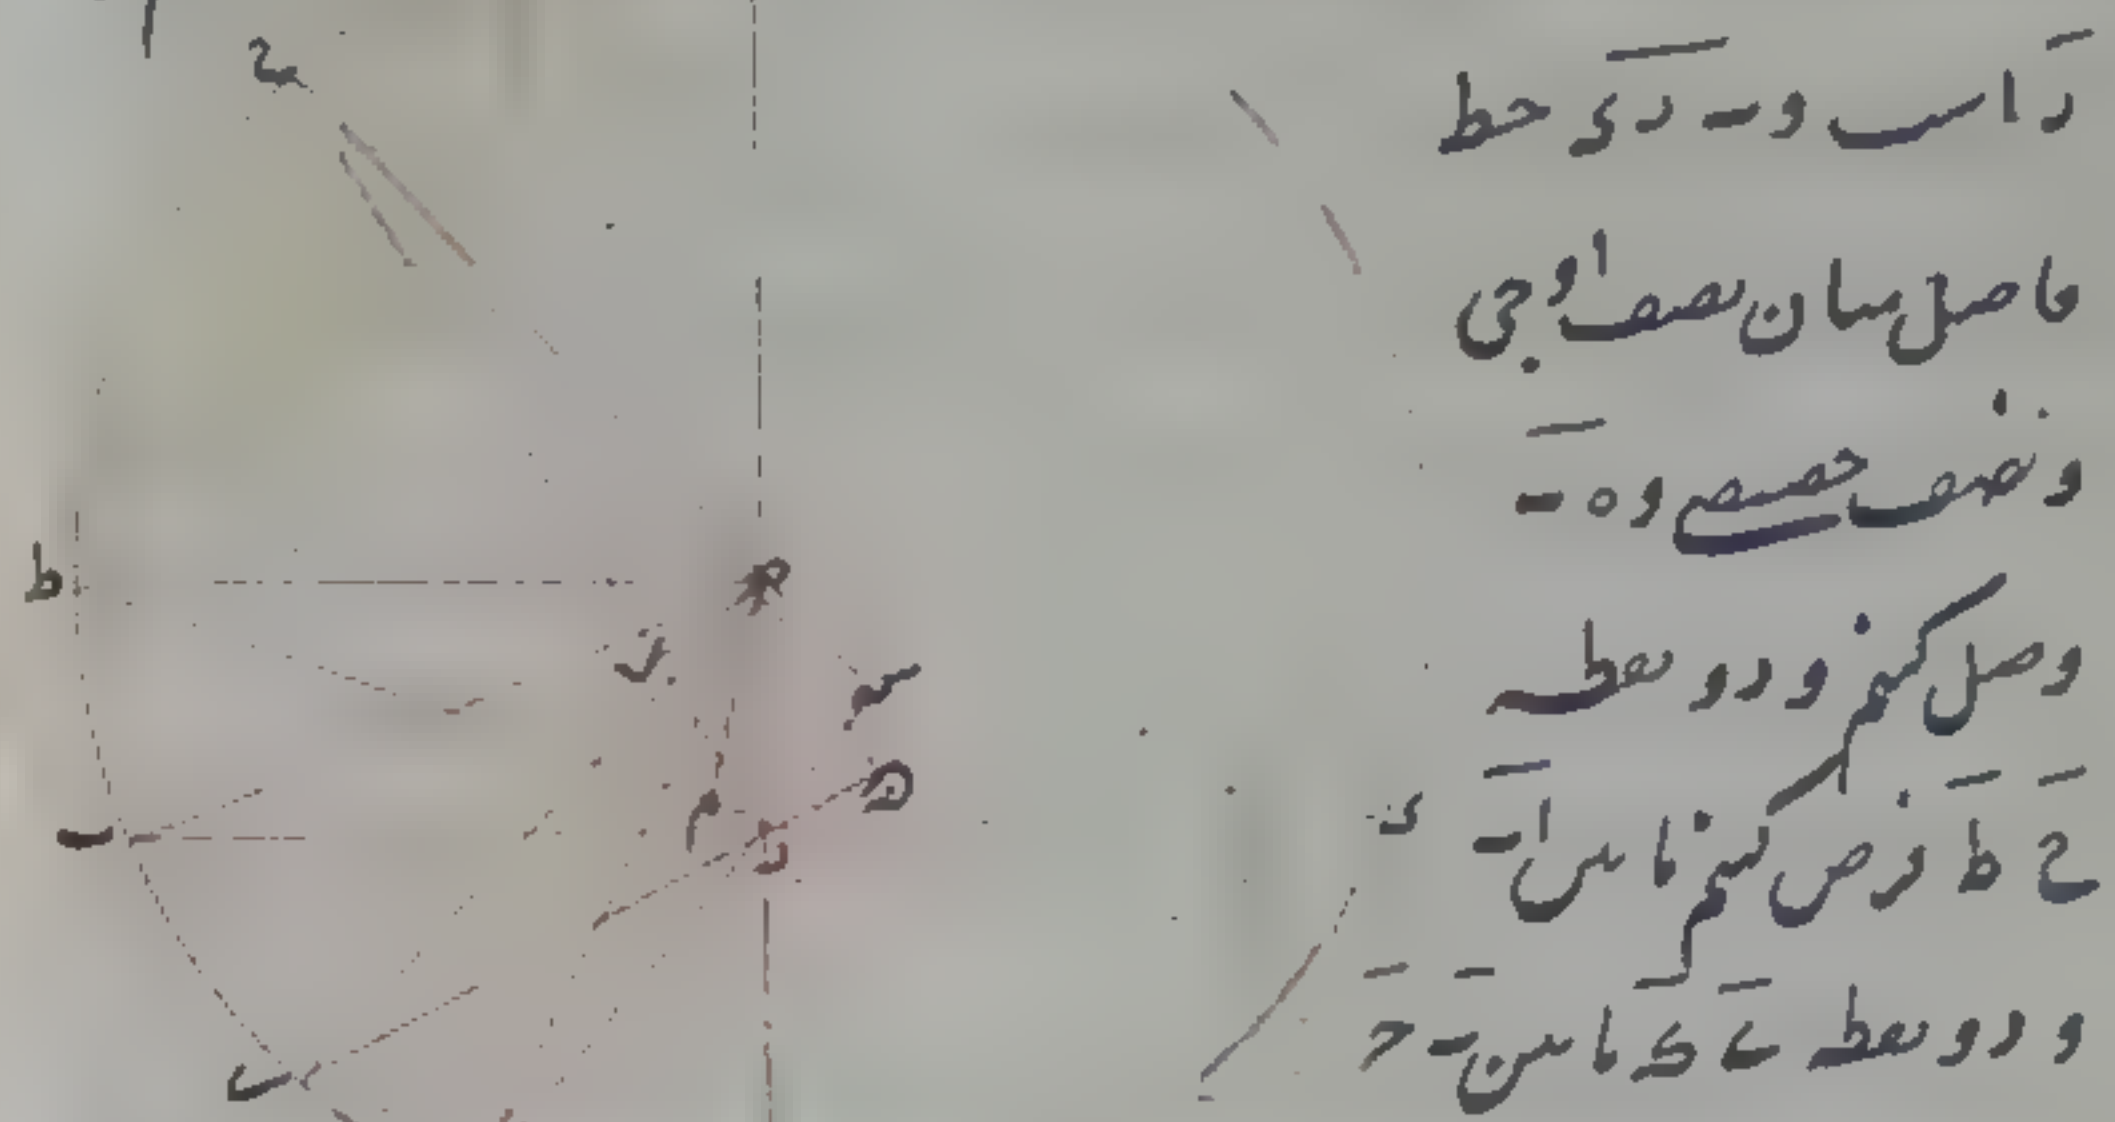 د است و ب د ی خط
فاصل میان نصف اوجی
و نصف حضیضی و ه ب
وصل کنیم و دو نقطه
ح ط فرض کنیم مابین ا ب
و دو نقطه ی ک مابین ب ح
ح
ط
م
ه
د
ب
ی